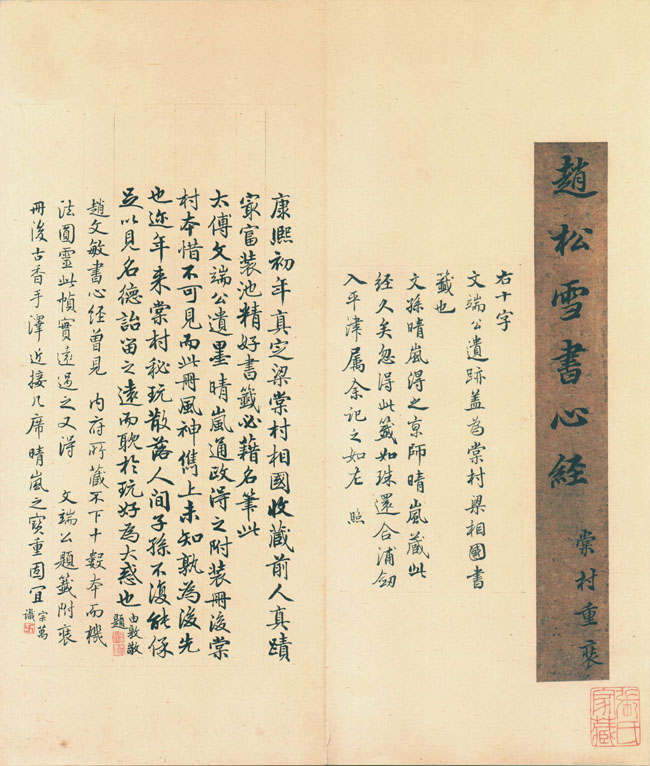 趙松雪書心經
棠村重裝
張氏家藏
右十字
文端公遺跡蓋為棠村梁相國書
籤也
文孫晴嵐得之京師晴嵐藏此
經久矣忽得此籤如珠還合浦劍
入平津屬余記之如左 照
康熙初年真定梁棠村相國收藏前人真蹟
冣富裝池精好書籤必藉名筆此
太傅文端公遺墨晴嵐通政得之附裝冊後棠
村本惜不可見而此冊風神雋上未知孰為後先
也近年來棠村秘玩散落人間子孫不復能保
足以見名德詒留之遠而耽於玩好為大惑也
由敦敬
題
趙文敏書心經曾見 內府所藏不下十數本而機
法圓靈此幀實遠過之又得 文端公題籤附裝
冊後古香手澤近接几席晴嵐之寶重固宜
宗萬
識